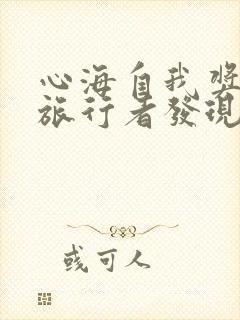 心海自我
旅行者發現
或可人